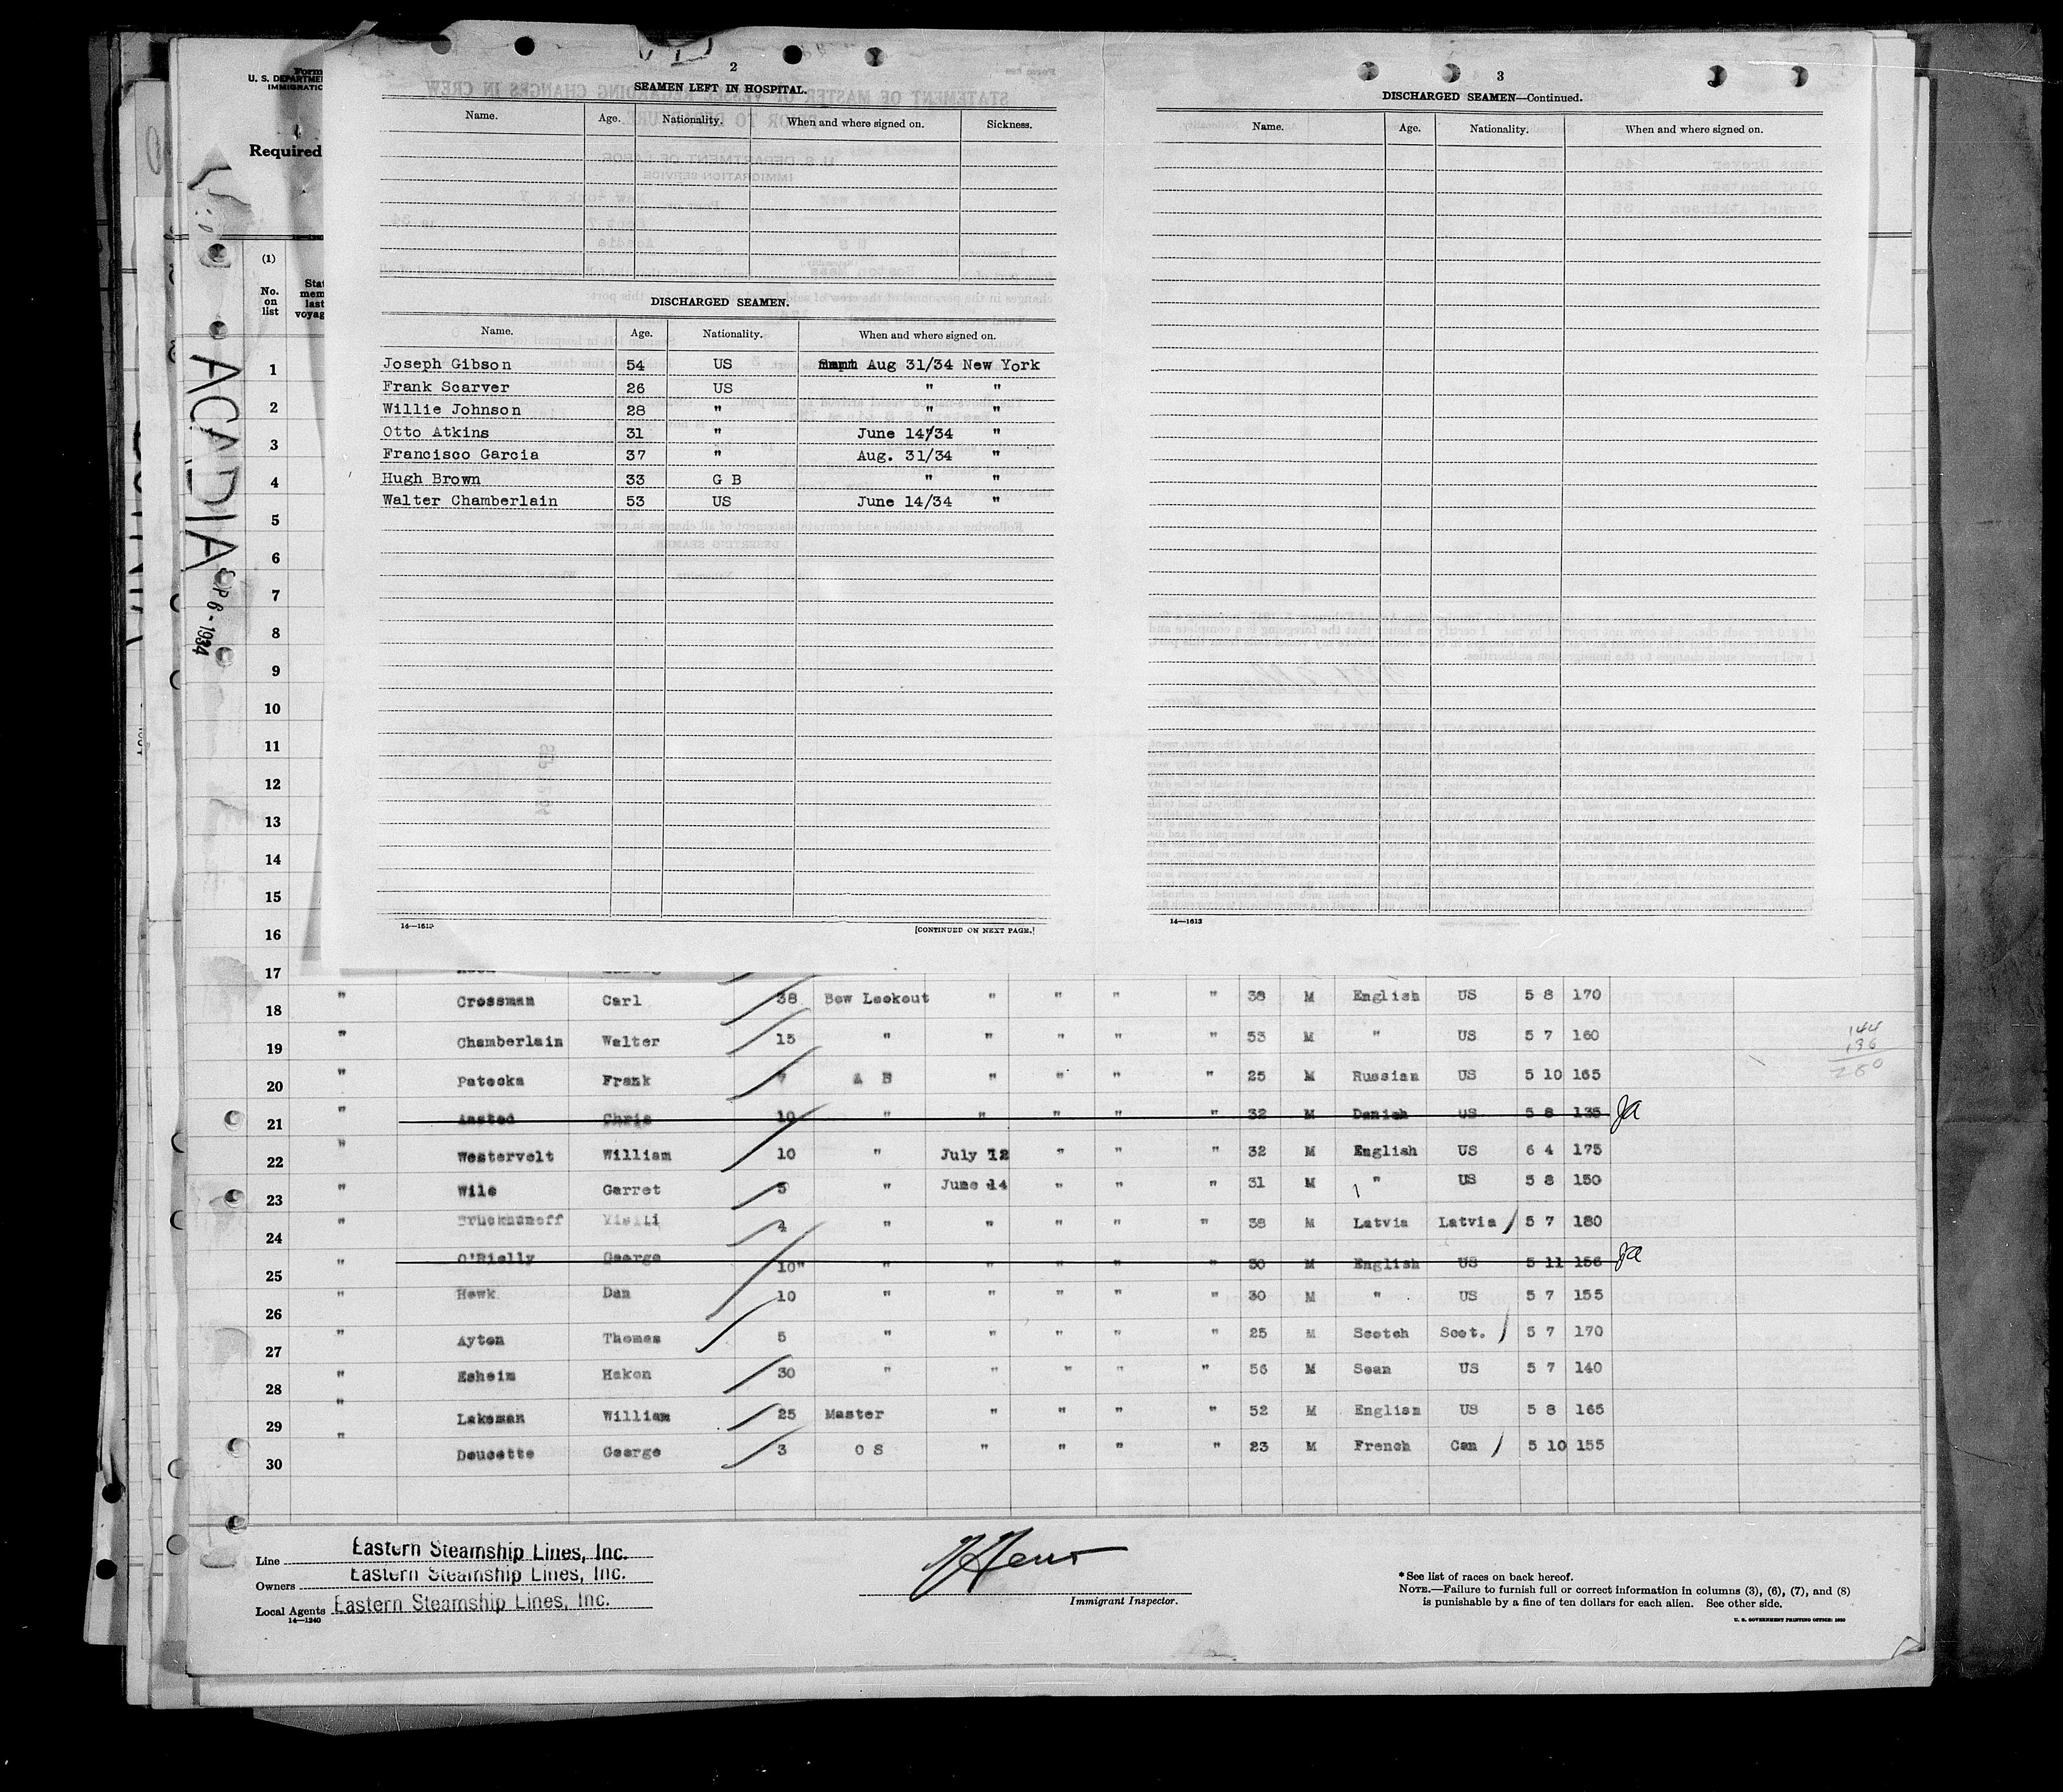 Form
U. S. DEPARTME
IMMIGRATIO
Required
(1)
No.
on
list
ACADIA
SEP 6 - 1934
2
SEAMEN LEFT IN HOSPITAL.
Name. Age. Nationality. When and where signed on. Sickness.
DISCHARGED SEAMEN.
Name. Age. Nationality. When and where signed on.
Joseph Gibson 54 US Aug 31/34 New York
Frank Scarver 26 US " "
Willie Johnson 28 " " "
Otto Atkins 31 " June 14/34 "
Francisco Garcia 37 " Aug. 31/34 "
Hugh Brown 33 G B " "
Walter Chamberlain 53 US June 14/34 "
14—1613
[CONTINUED ON NEXT PAGE.]
3
DISCHARGED SEAMEN—Continued.
Name. Age. Nationality. When and where signed on.
14—1613
1
2
3
4
5
6
7
8
9
10
11
12
13
14
15
16
17
18 " Crossman Carl 38 Bow Lookout " " " " 38 M English US 5 8 170
19 " Chamberlain Walter 15 " " " " " 53 M " US 5 7 160
20 " Patocka Frank 7 A B " " " " 25 M Russian US 5 10 165
21 " Aasted Chris 10 " " " " " 32 M Danish US 5 8 135 JA
22 " Westervelt William 10 " July 12 " " " 32 M English US 6 4 175
23 " Wile Garret 5 " June 14 " " " 31 M " US 5 8 150
24 " 4 " " " " " 38 M Latvia Latvia 5 7 180
25 " O'Rielly George 10 " " " " " 30 M English US 5 11 156 JA
26 " Hawk Dan 10 " " " " " 30 M " US 5 7 155
27 " Ayton Thomas 5 " " " " " 25 M Scotch Scot. 5 7 170
28 " Esheim Hakon 30 " " " " " 56 M Scan US 5 7 140
29 " Lakeman William 25 Master " " " " 52 M English US 5 8 165
30 " Doucette George 3 O S " " " " 23 M French Can 5 10 155
144
136
280
Line Eastern Steamship Lines, Inc.
Owners Eastern Steamship Lines, Inc.
Local Agents Eastern Steamship Lines, Inc.
14—1240
Immigrant Inspector.
* See list of races on back hereof.
NOTE.—Failure to furnish full or correct information in columns (3), (6), (7), and (8)
is punishable by a fine of ten dollars for each alien. See other side.
U. S. GOVERNMENT PRINTING OFFICE: 1930